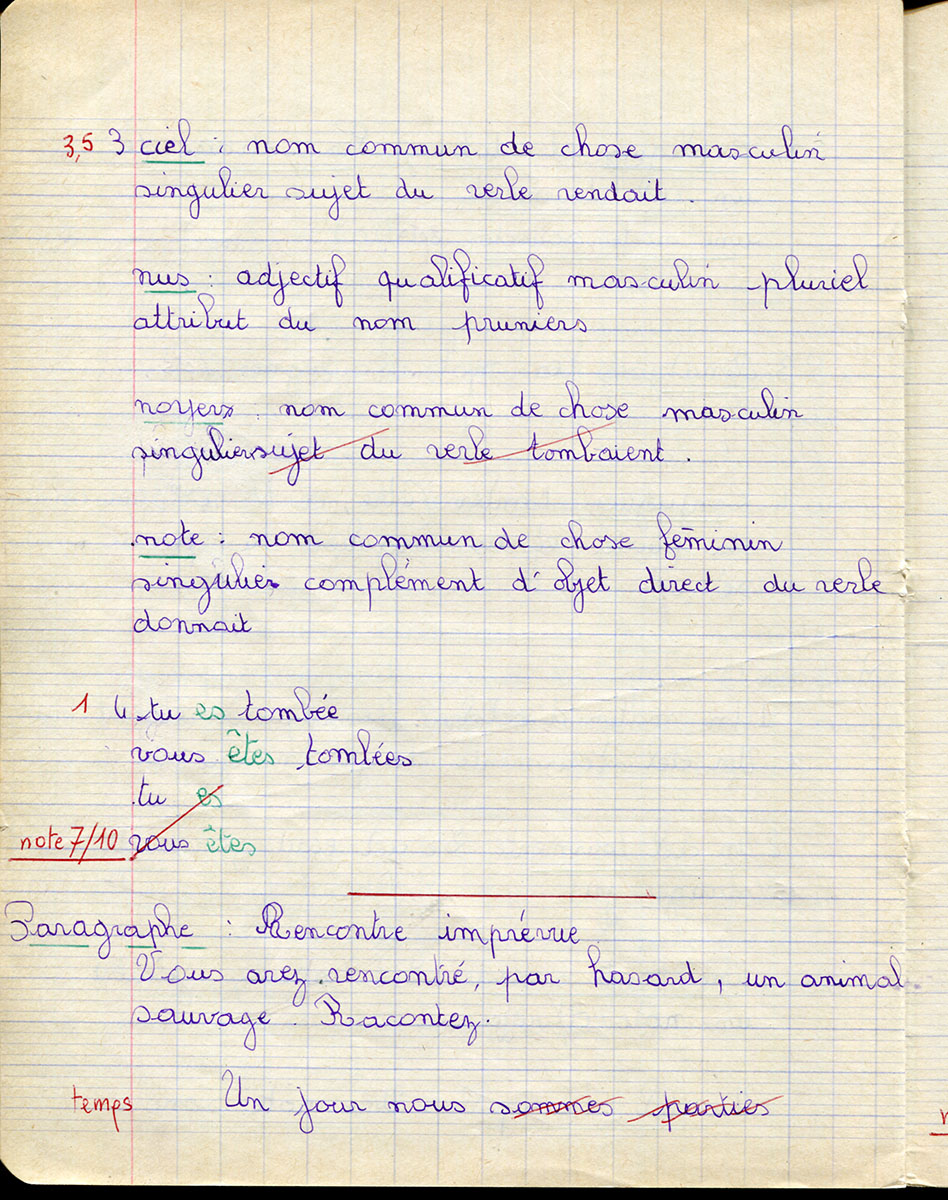 3,5 3 ciel : nom commun de chose masculin
singulier sujet du verbe rendait.
nus : adjectif qualificatif masculin pluriel
attribut du nom pruniers
noyers nom commun de chose masculin
singulier sujet du verbe tombaient.
note : nom commun de chose féminin
singulier complément d'objet direct du verbe
donnait
1 4 tu es tombée
vous êtes tombées
tu es
note 7/10 vous êtes
Paragraphe : Rencontre imprévue
Vous avez rencontré, par hasard, un animal
sauvage. Racontez.
temps Un jour nous sommes parties